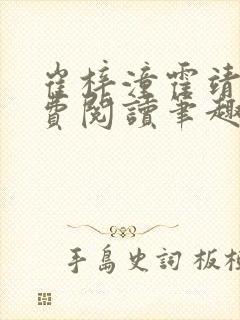 崔梓潼霍靖
費閱讀筆趣
手島史詞 板橋